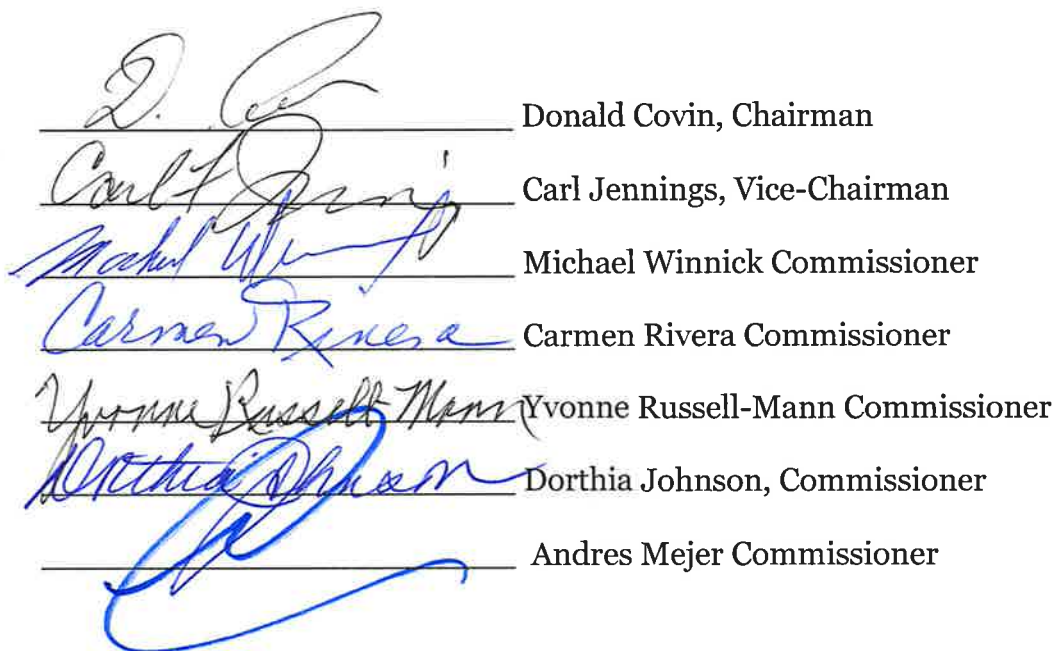 D. Donald Covin, Chairman
Carl F Jennings Carl Jennings, Vice-Chairman
Michael Winnick Michael Winnick Commissioner
Carmen Rivera Carmen Rivera Commissioner
Yvonne Russell-Mann Yvonne Russell-Mann Commissioner
Dorthia Johnson Dorthia Johnson, Commissioner
Andres Mejer Commissioner